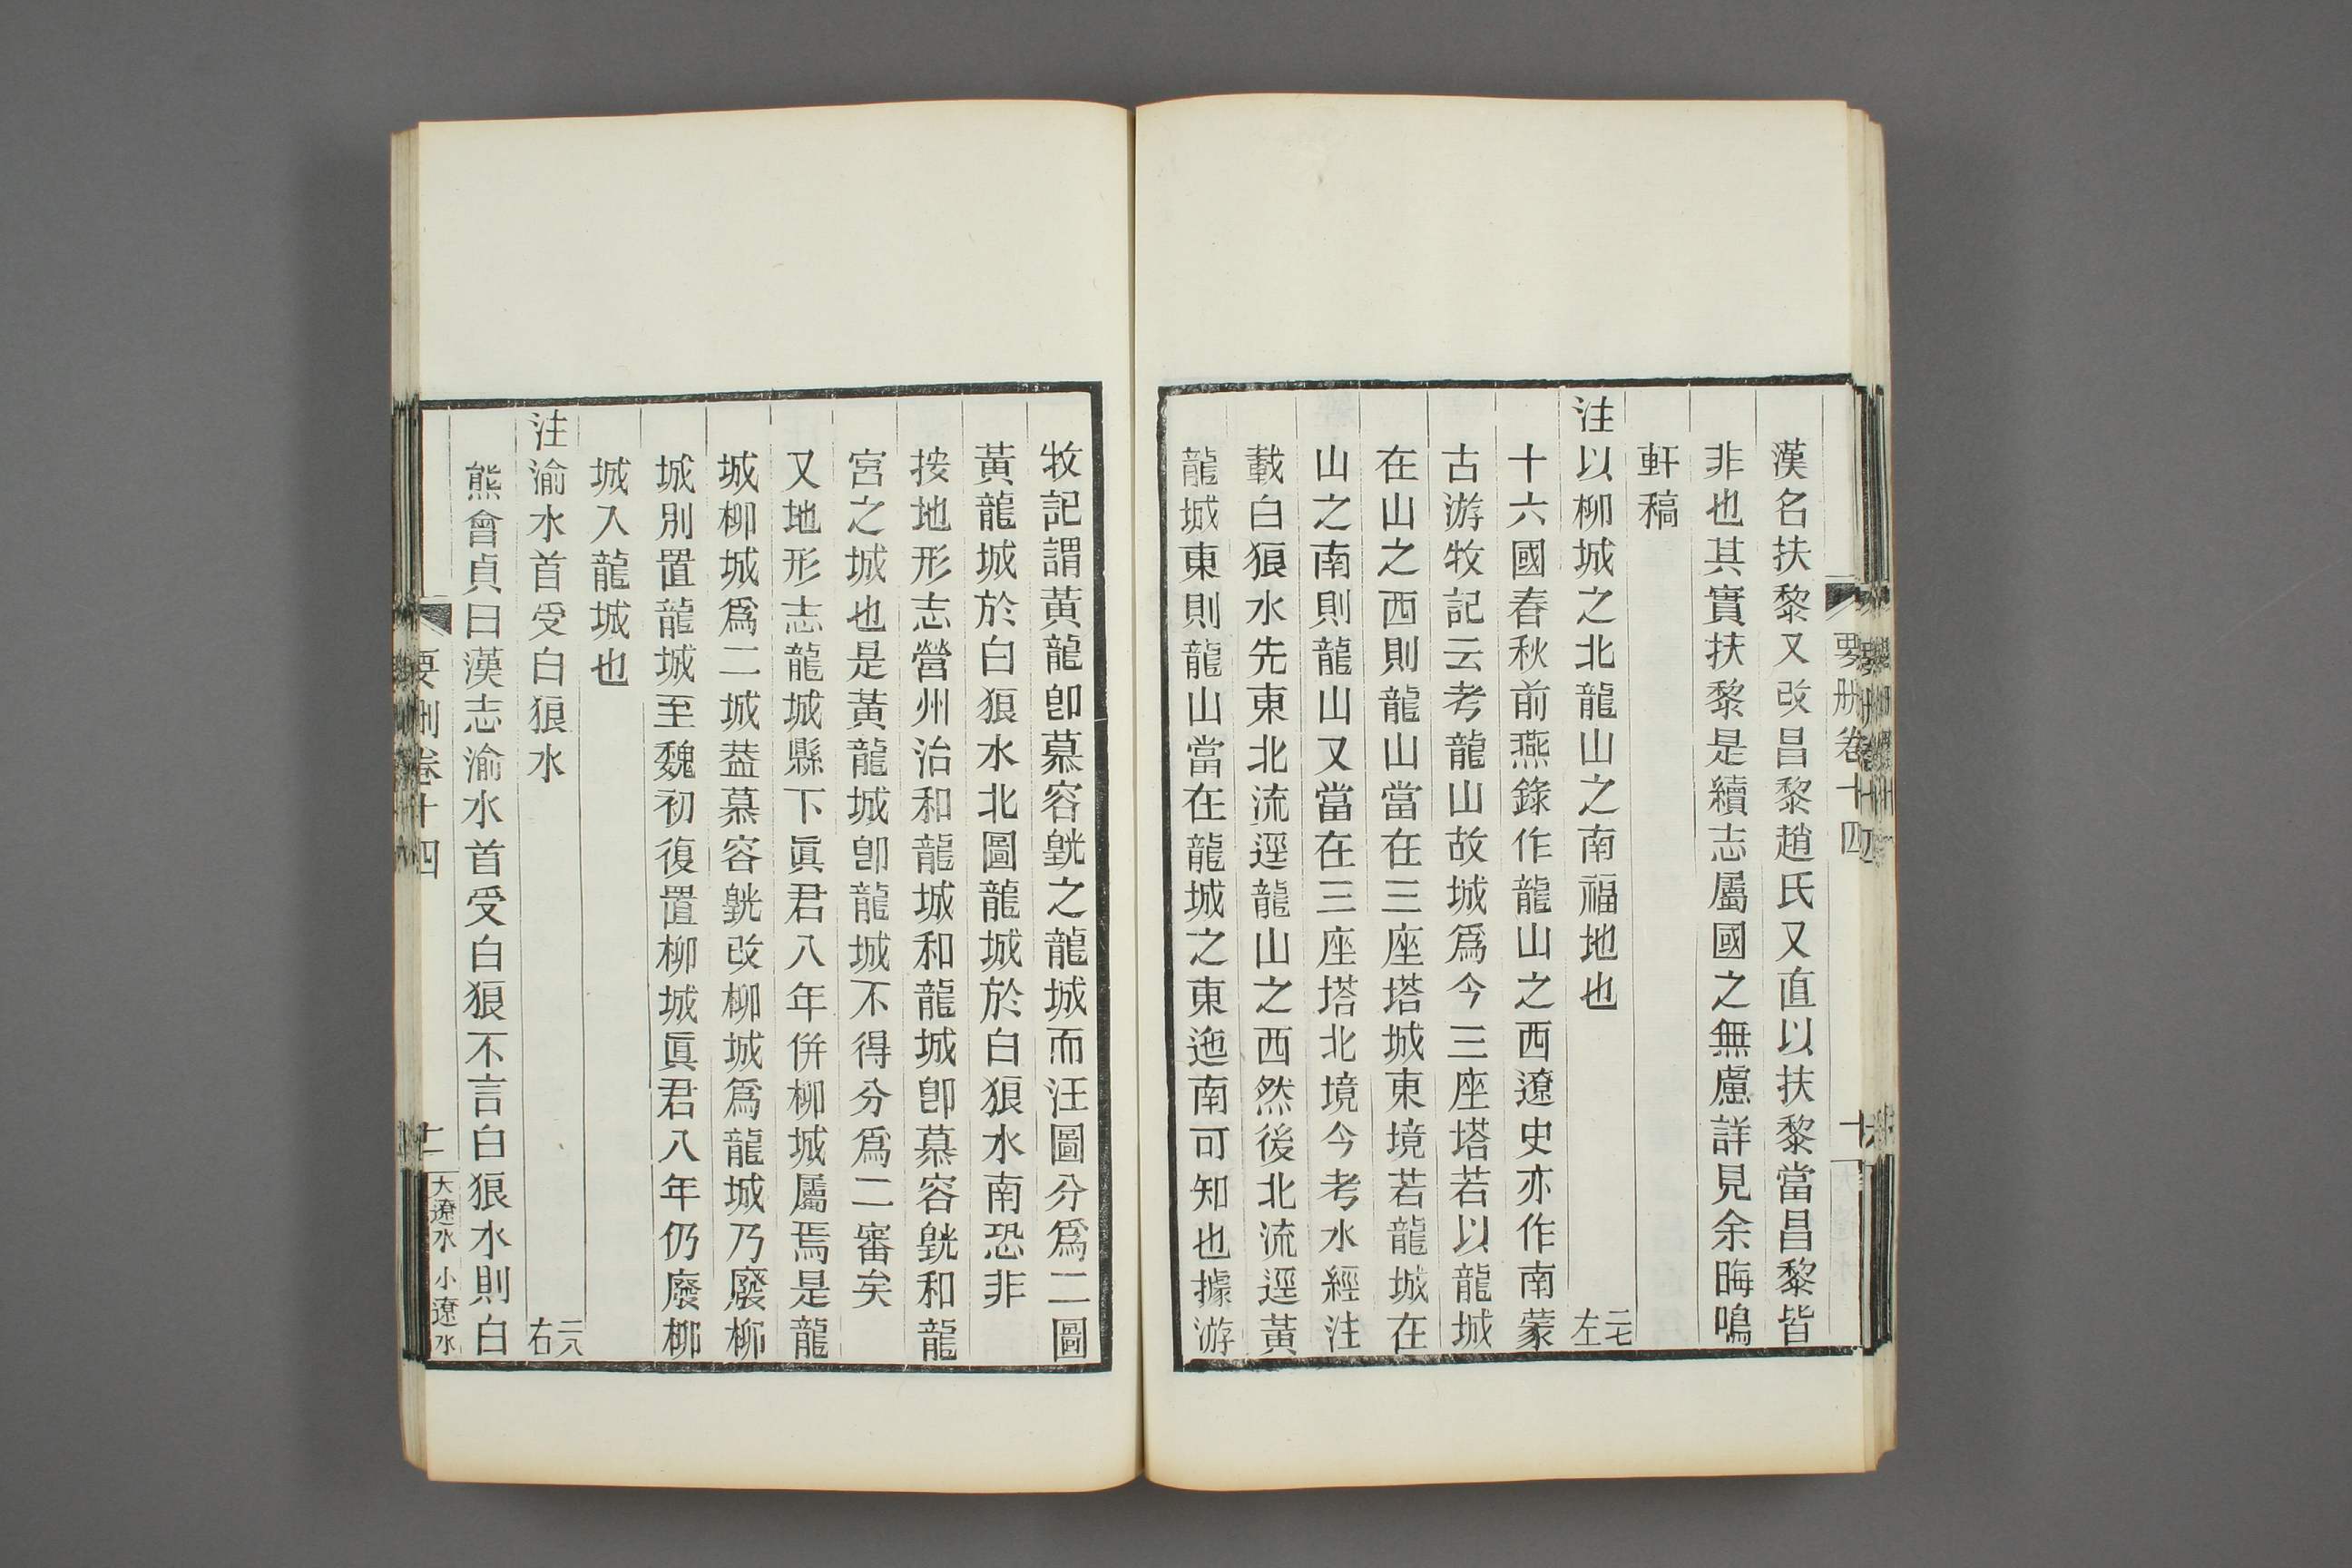 漢名扶黎又改昌黎趙氏又直以扶黎當昌黎皆
非也其實扶黎是續志屬國之無慮詳見余晦鳴
軒稿
注以柳城之北龍山之南福地也 二七左
十六國春秋前燕錄作龍山之西遼史亦作南蒙
古游牧記云考龍山故城爲今三座塔若以龍城
在山之西則龍山當在三座塔城東境若龍城在
山之南則龍山又當在三座塔北境今考水經注
載白狼水先東北流逕龍山之西然後北流逕黃
龍城東則龍山當在龍城之東迤南可知也據游
要刪卷十四
牧記謂黃龍卽慕容皝之龍城而汪圖分爲二圖
黃龍城於白狼水北圖龍城於白狼水南恐非
按地形志營州治和龍城和龍城卽慕容皝和龍
宮之城也是黃龍城卽龍城不得分爲二審矣
又地形志龍城縣下眞君八年併柳城屬焉是龍
城柳城爲二城葢慕容皝改柳城爲龍城乃廢柳
城別置龍城至魏初復置柳城眞君八年仍廢柳
城入龍城也
注渝水首受白狼水 二八右
熊會貞曰漢志渝水首受白狼不言白狼水則白
要刪卷十四
十一
大遼水 小遼水